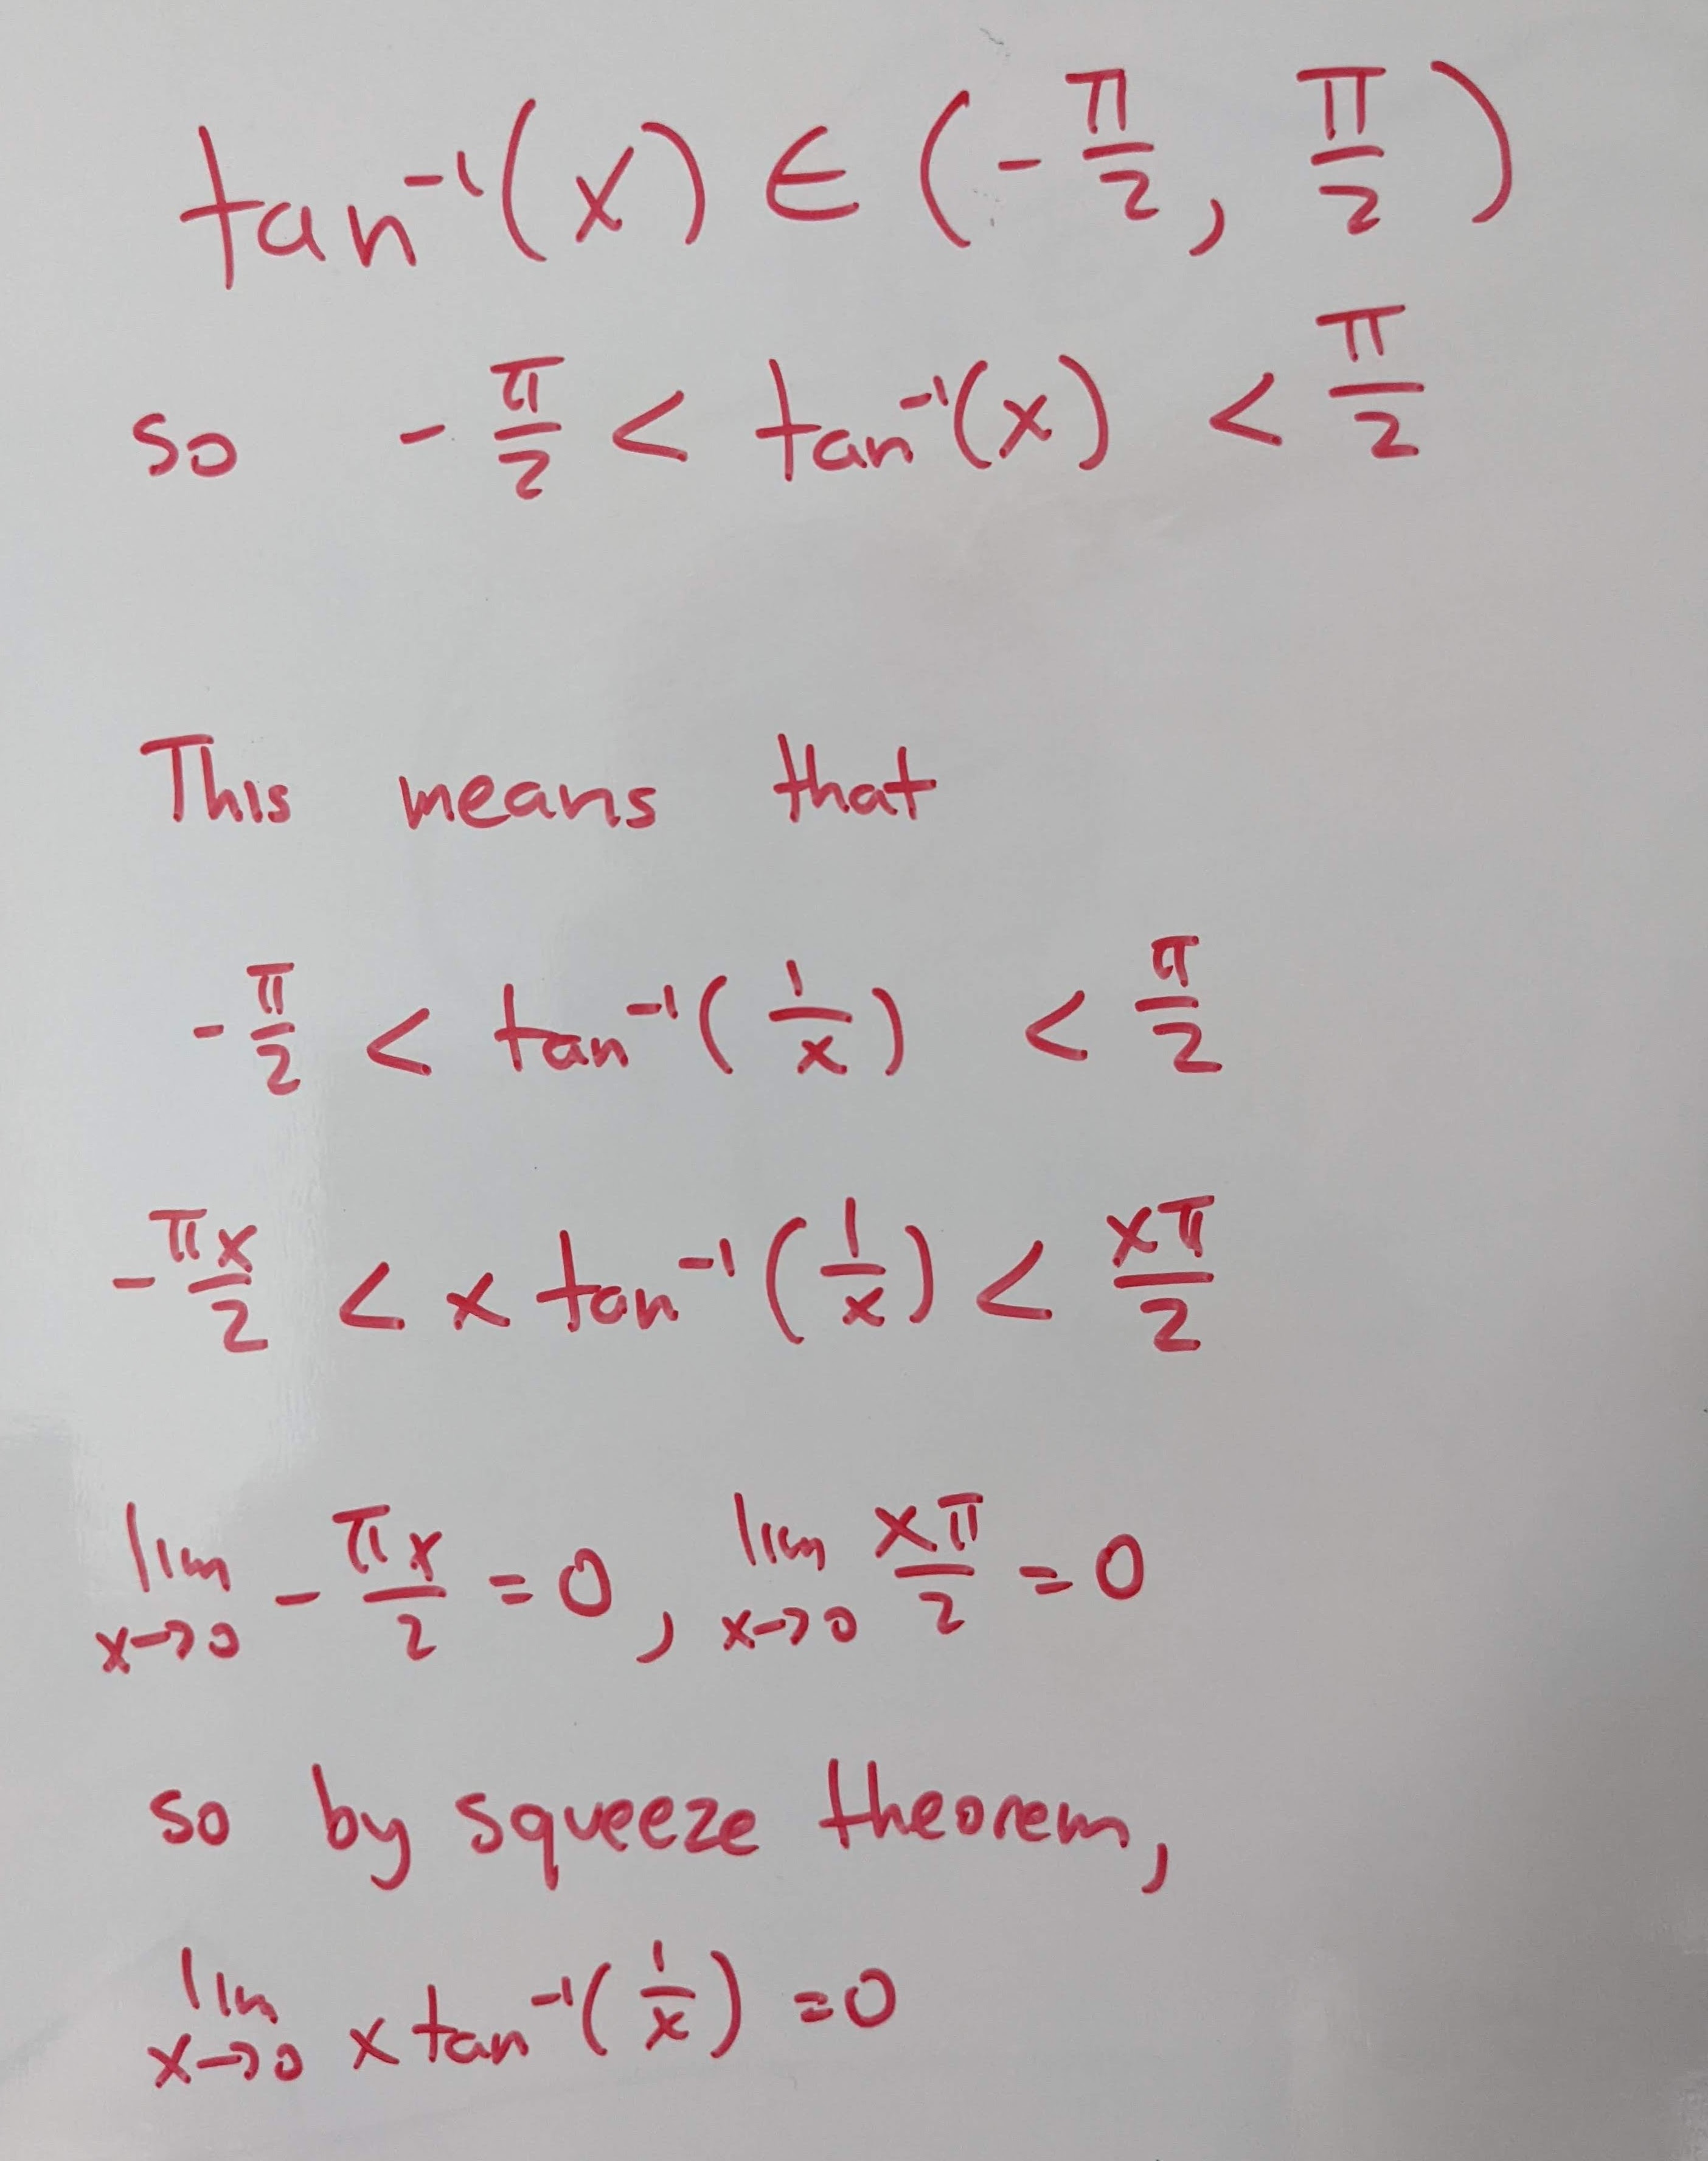 tan⁻¹(x) ∈ (-π/2, π/2)
so -π/2 < tan⁻¹(x) < π/2
This means that
-π/2 < tan⁻¹(1/x) < π/2
-πx/2 < x tan⁻¹(1/x) < xπ/2
lim x→0 -πx/2 = 0, lim x→0 xπ/2 = 0
so by squeeze theorem,
lim x→0 x tan⁻¹(1/x) = 0